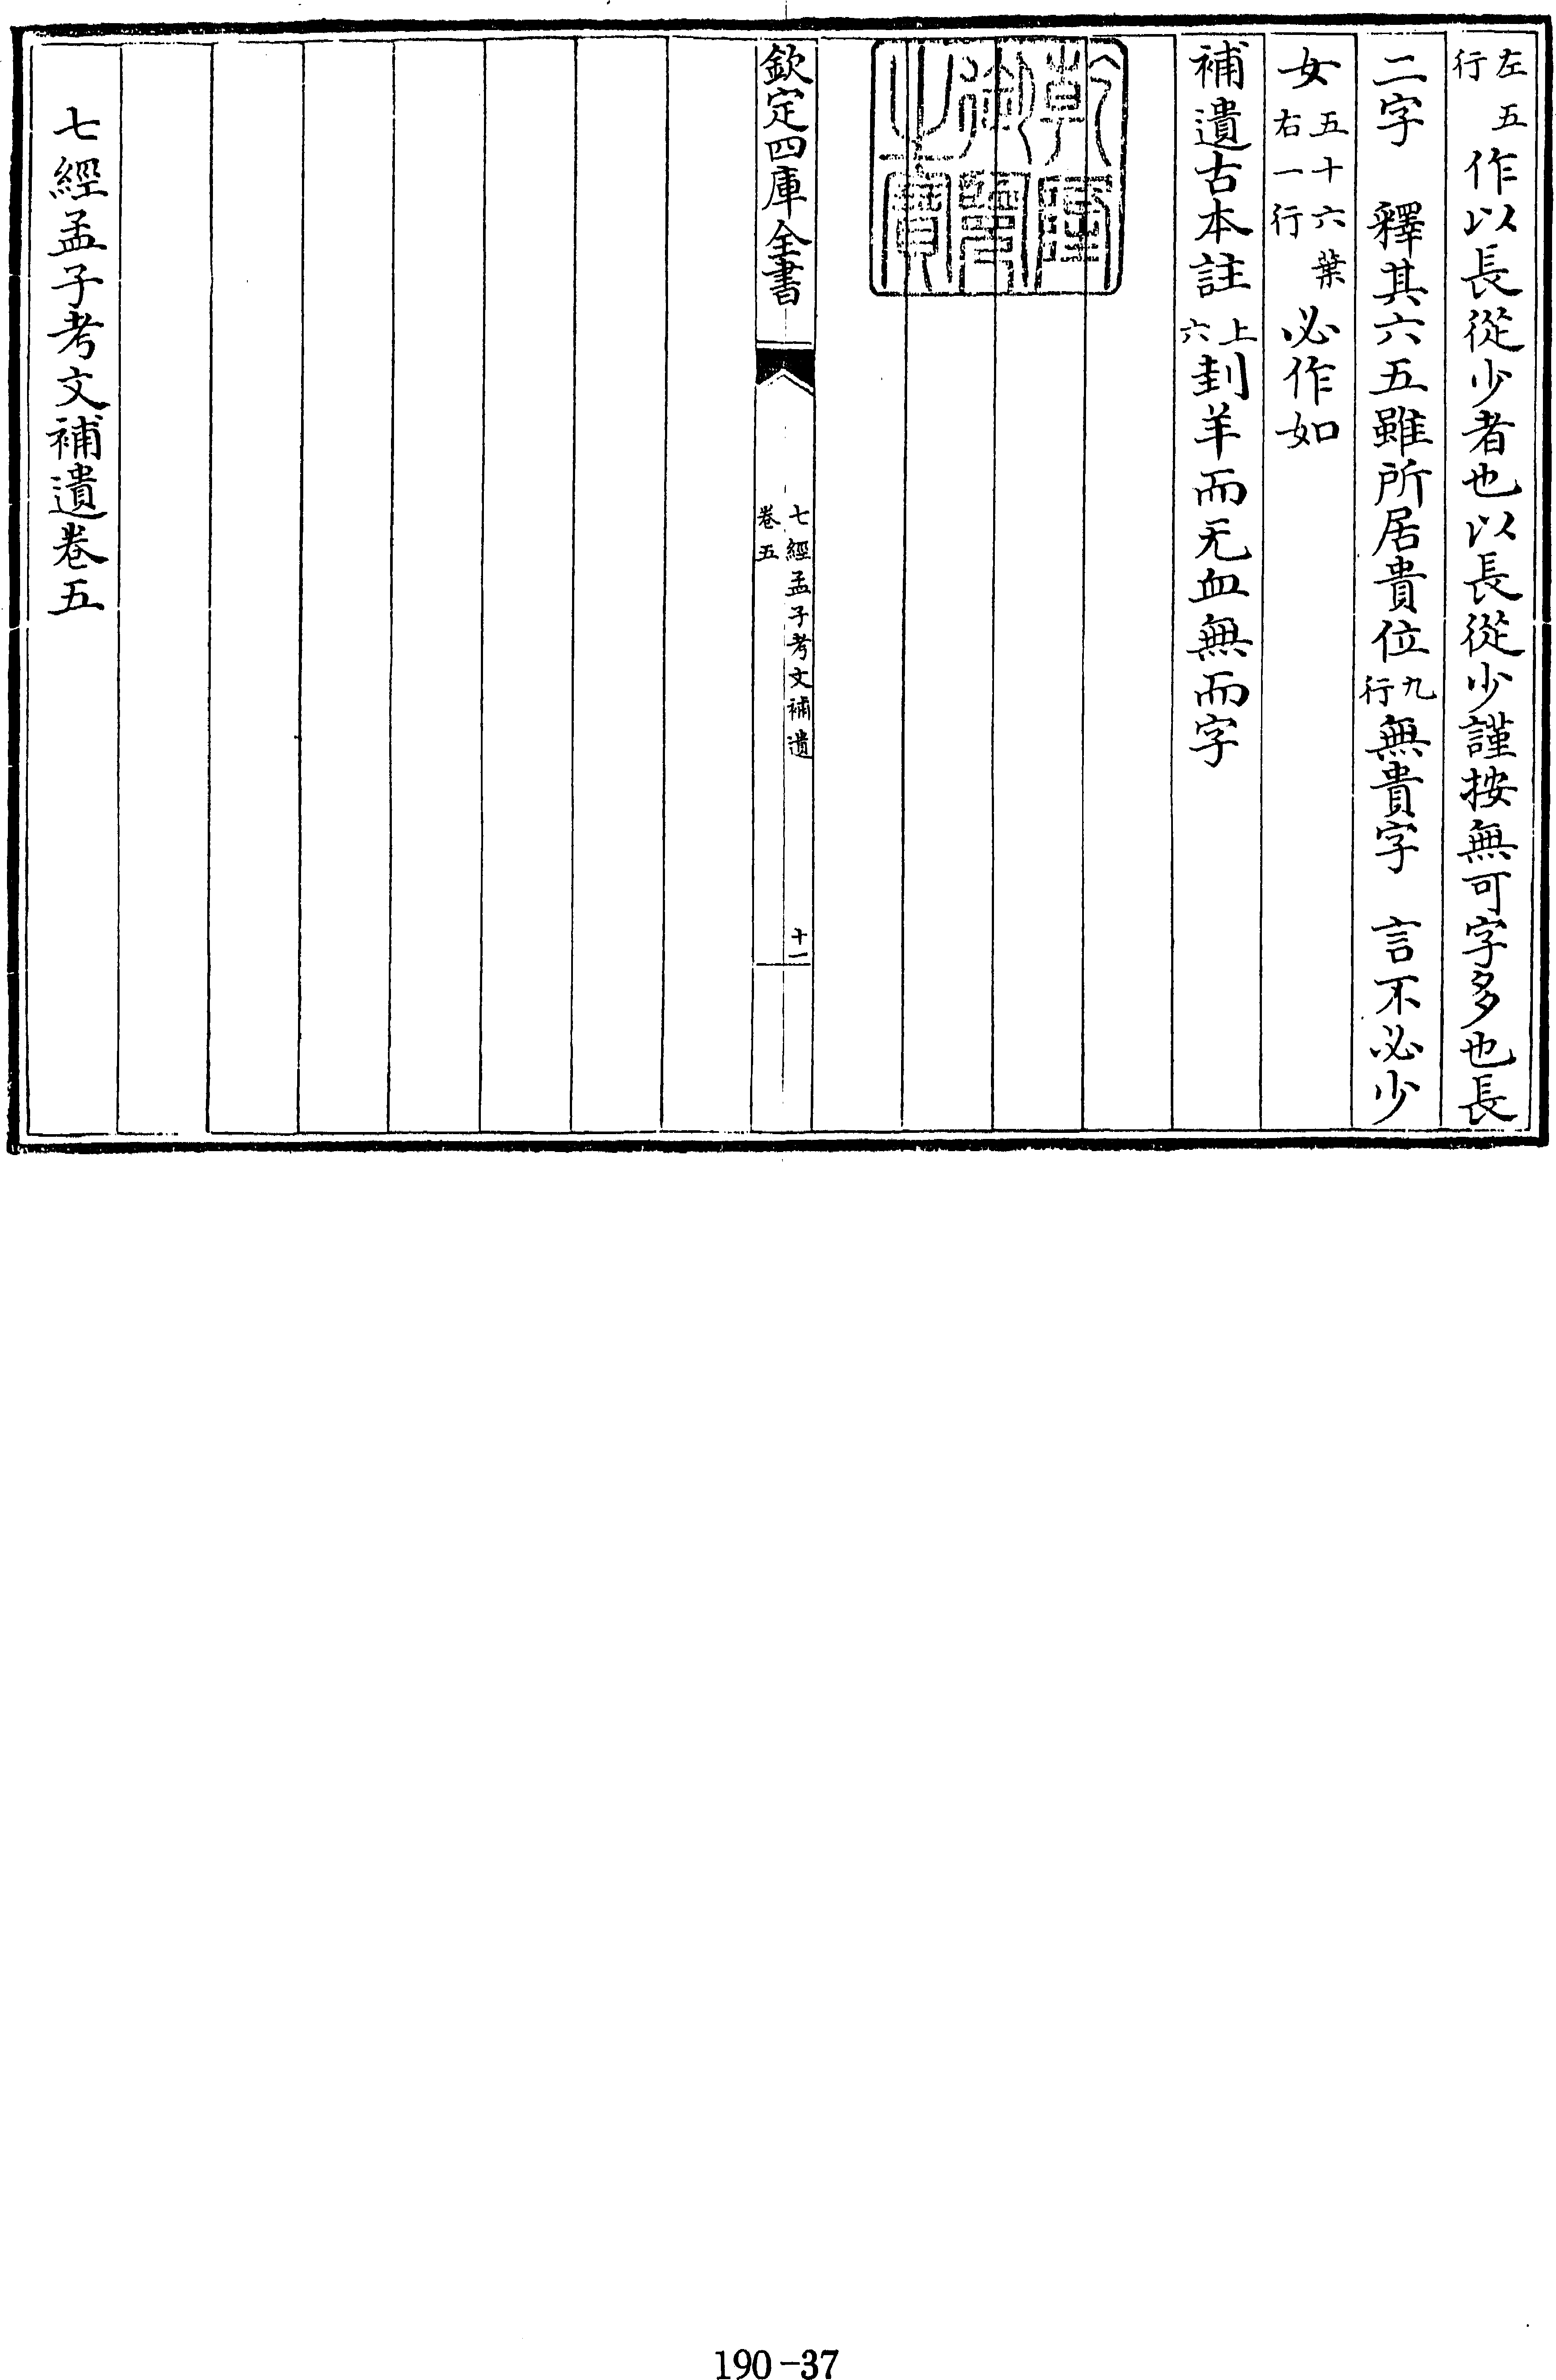 左五行作以長從少者也以長從少謹按無可字多也長
二字　釋其六五雖所居貴位九行無貴字　言不必少
女五十六葉右一行必作如
補遺古本註上六刲羊而无血無而字
乾隆御覽之寶
欽定四庫全書
七經孟子考文補遺
卷五
十一
七經孟子考文補遺卷五
190-37